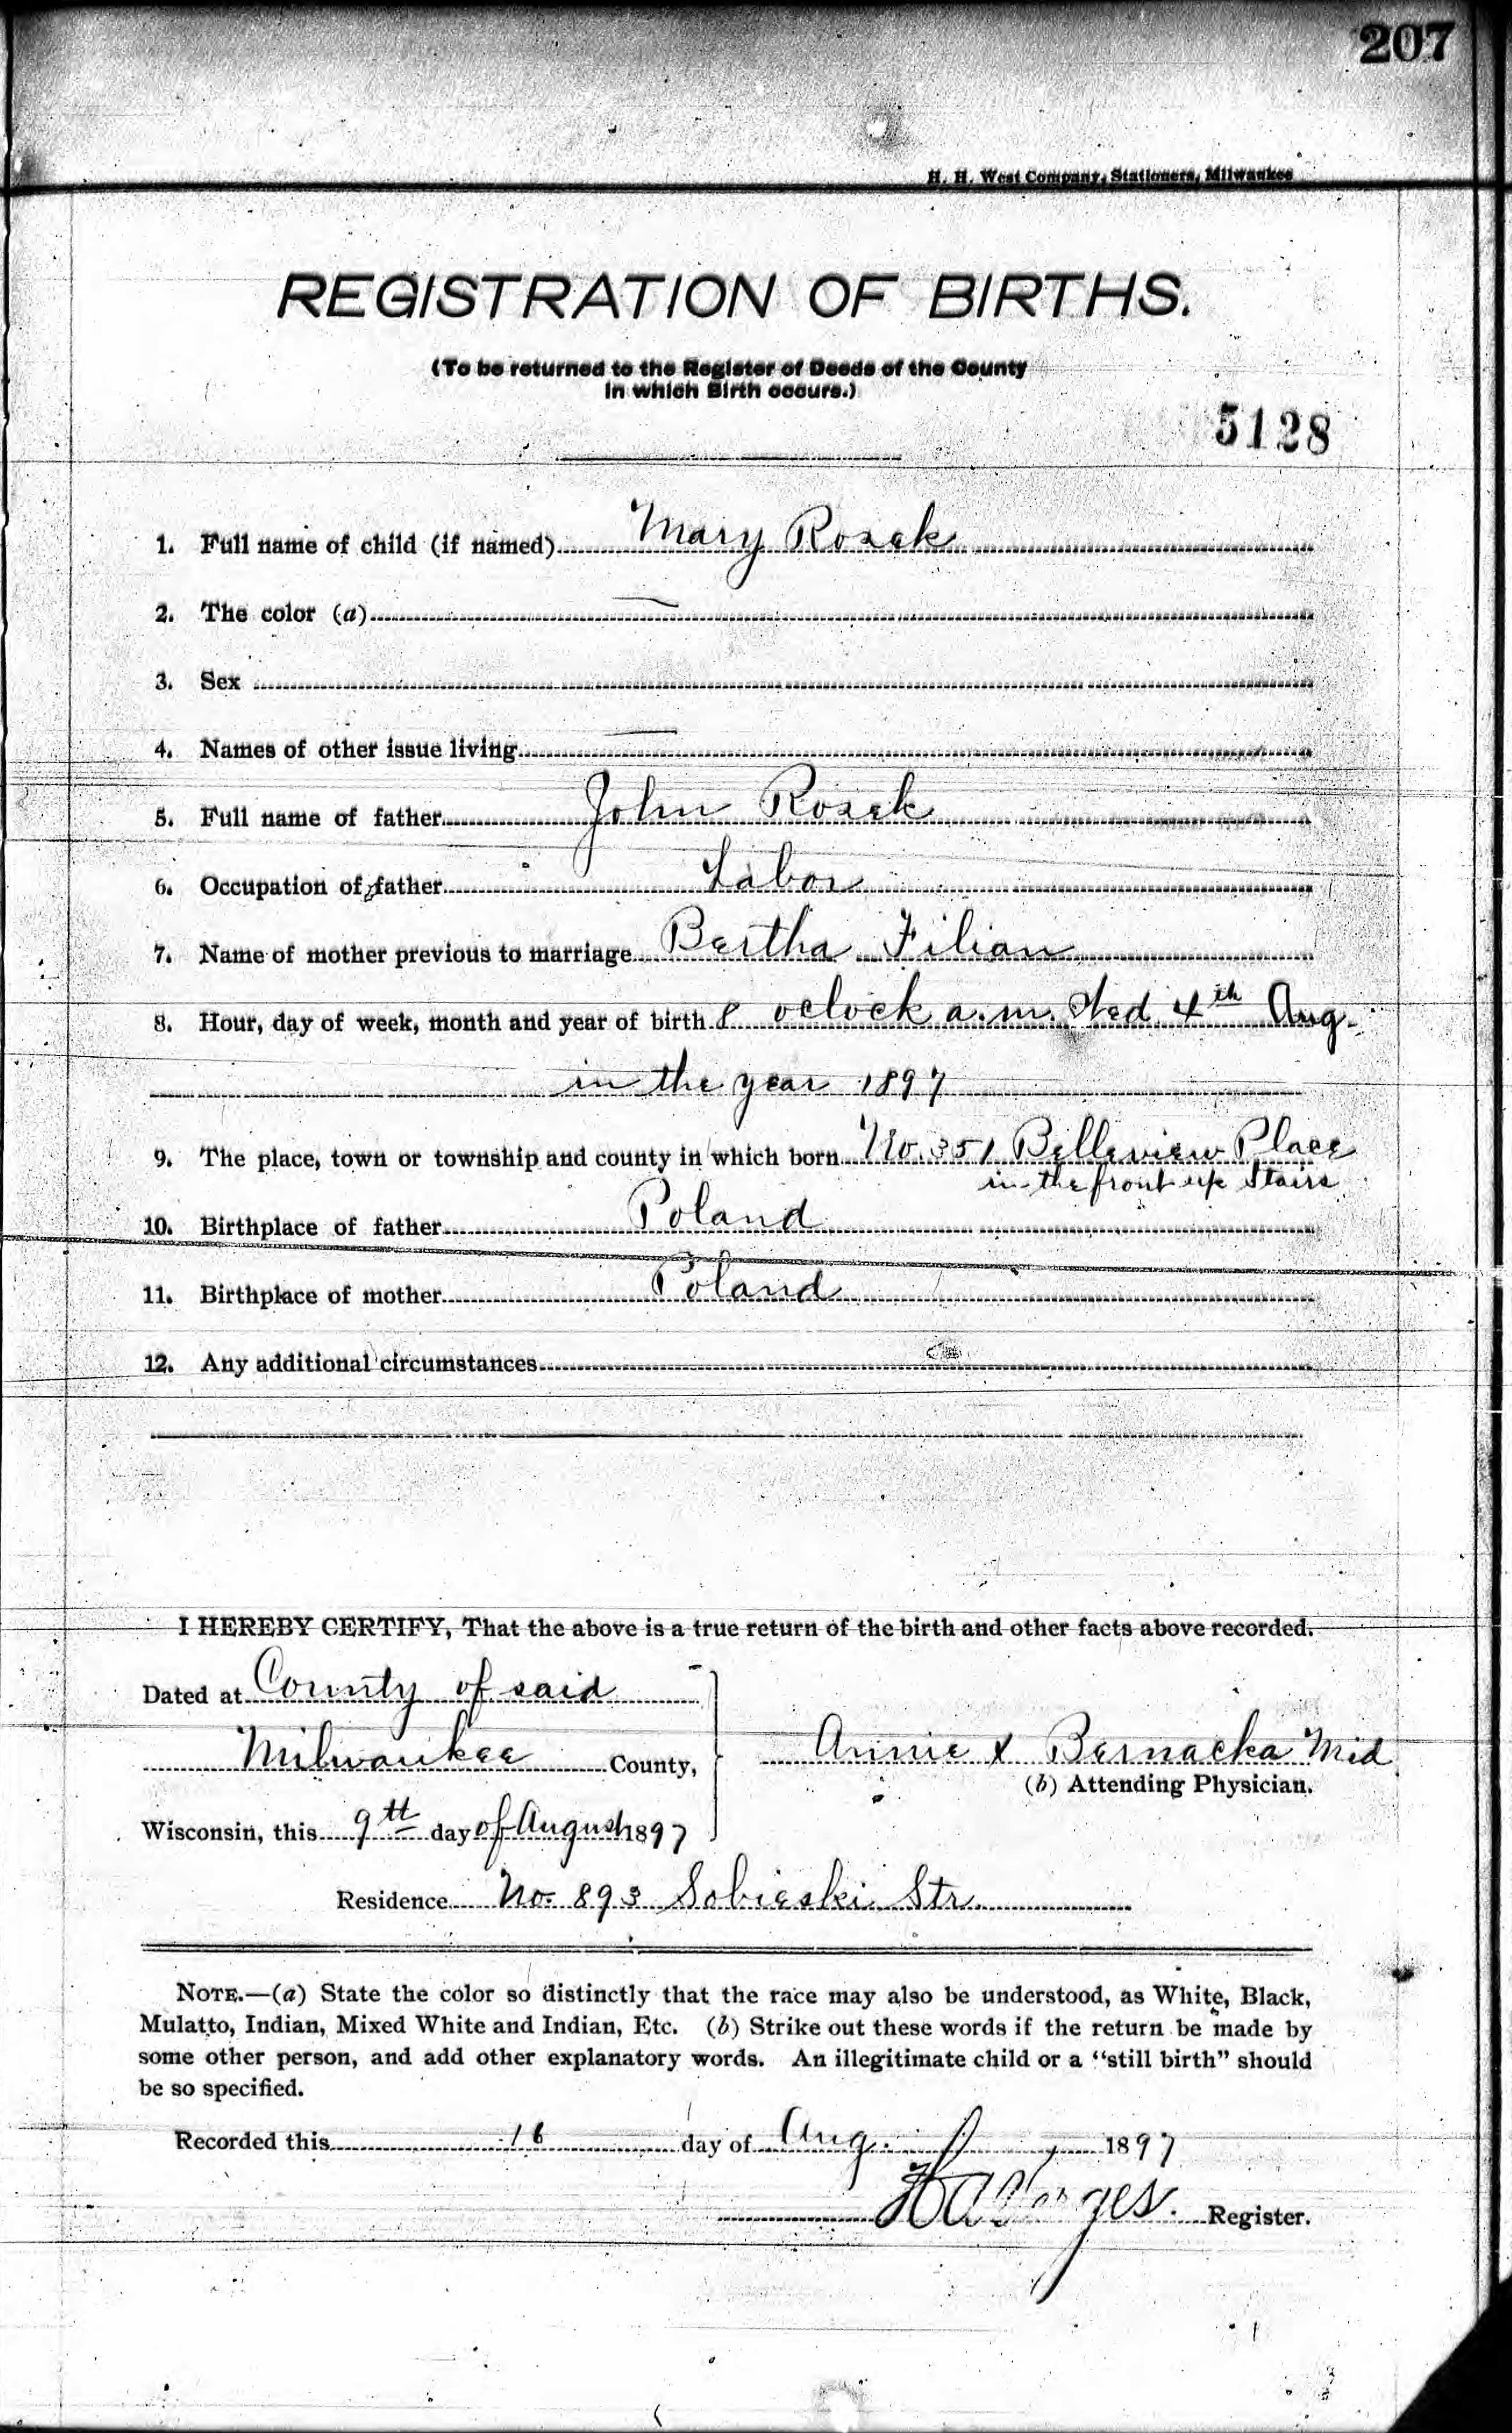 207
H. H. West Company, Stationers, Milwaukee
REGISTRATION OF BIRTHS.
(To be returned to the Register of Deeds of the County
in which Birth occurs.)
5128
1. Full name of child (if named) Mary Rozek
2. The color (a)
3. Sex
4. Names of other issue living
5. Full name of father John Rozek
6. Occupation of father Labor
7. Name of mother previous to marriage Bertha Filian
8. Hour, day of week, month and year of birth 8 oclock a.m. Wed 4th Aug.
in the year 1897
9. The place, town or township and county in which born No. 351 Belleview Place
in the front up Stairs
10. Birthplace of father Poland
11. Birthplace of mother Poland
12. Any additional circumstances
I HEREBY CERTIFY, That the above is a true return of the birth and other facts above recorded.
Dated at County of said
Milwaukee County,
Annie X Bernacka Mid
(b) Attending Physician.
Wisconsin, this 9th day of August 1897
Residence No. 893 Sobieski Str.
NOTE.—(a) State the color so distinctly that the race may also be understood, as White, Black,
Mulatto, Indian, Mixed White and Indian, Etc. (b) Strike out these words if the return be made by
some other person, and add other explanatory words. An illegitimate child or a "still birth" should
be so specified.
Recorded this 16 day of Aug. 1897
Register.